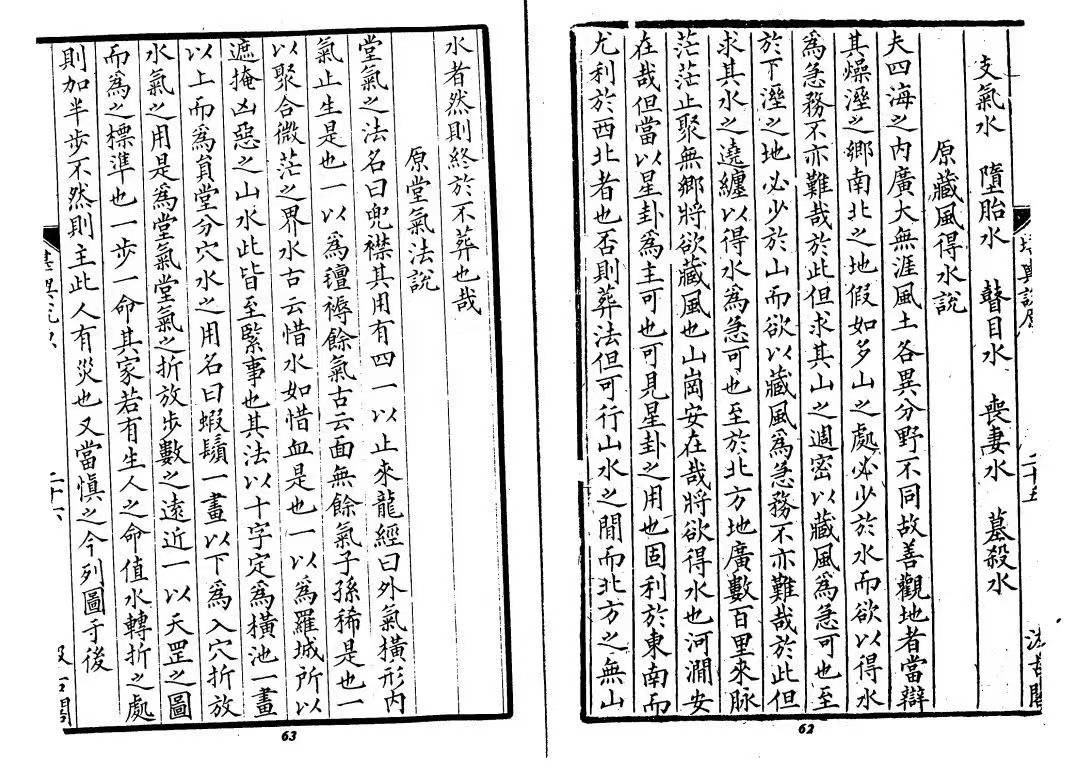 支氣水 墮胎水 瞽目水 喪妻水 墓殺水
原藏風得水說
夫四海之內廣大無涯風土各異分野不同故善觀地者當辯
其燥溼之鄉南北之地假如多山之處必少於水而欲以得水
爲急務不亦難哉於此但求其山之週密以藏風爲急可也至
於下溼之地必少於山而欲以藏風爲急務不亦難哉於此但
求其水之遶纏以得水爲急可也至於北方地廣數百里來脉
茫茫止聚無鄉將欲藏風也山崗安在哉將欲得水也河澗安
在哉但當以星卦爲主可也可見星卦之用也固利於東南而
尤利於西北者也否則葬法但可行山水之間而北方之無山
62
水者然則終於不葬也哉
原堂氣法說
堂氣之法名曰兜襟其用有四一以止來龍經曰外氣橫形內
氣止生是也一以爲氊褥餘氣古云面無餘氣子孫稀是也一
以聚合微茫之界水古云惜水如惜血是也一以爲羅城所以
遮掩凶惡之山水此皆至緊事也其法以十字定爲橫池一畫
以上而爲負堂分穴水之用名曰蝦鬚一畫以下爲入穴折放
水氣之用是爲堂氣堂氣之折放步數之遠近一以天罡之圖
而爲之標準也一步一命其家若有生人之命值水轉折之處
則加半步不然則主此人有災也又當慎之今列圖于後
二十六
63